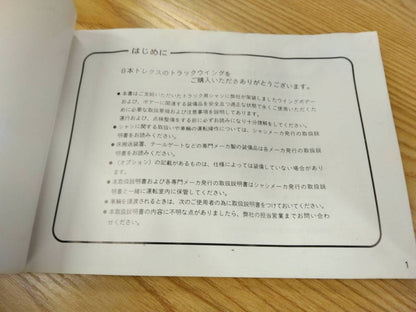 はじめに
日本トレクスのトラックウイングを
ご購入いただきありがとうございます。
● 本書はご支給いただいたトラック用シャシに弊社が架装しましたウイングボデー
および、ボデーに関連する装備品を安全且つ適正な状態で永くご使用いただくた
めに必要な取扱要領および注意事項を説明しております。
運行および、点検整備をする前に必ずお読みになり十分理解をしてください。
● シャシに関する取扱いや車輌の運転操作については、シャシメーカ発行の取扱説
明書をお読みください。
● 床搬送装置、テールゲートなどの専門メーカ製の装備品は各メーカ発行の取扱説
明書をお読みください。
● (オプション)の記載があるものは、仕様によっては装備していない場合があり
ます。
● 本取扱説明書および各専門メーカ発行の取扱説明書はシャシメーカ発行の取扱説
明書と一緒に運転室内に保管してください。
● 車輌を譲渡されるときは、次のご使用者の為に取扱説明書をつけておいてください。
● 本取扱説明書の内容に不明な点がありましたら、弊社の担当営業までお問い合わ
せください。
1